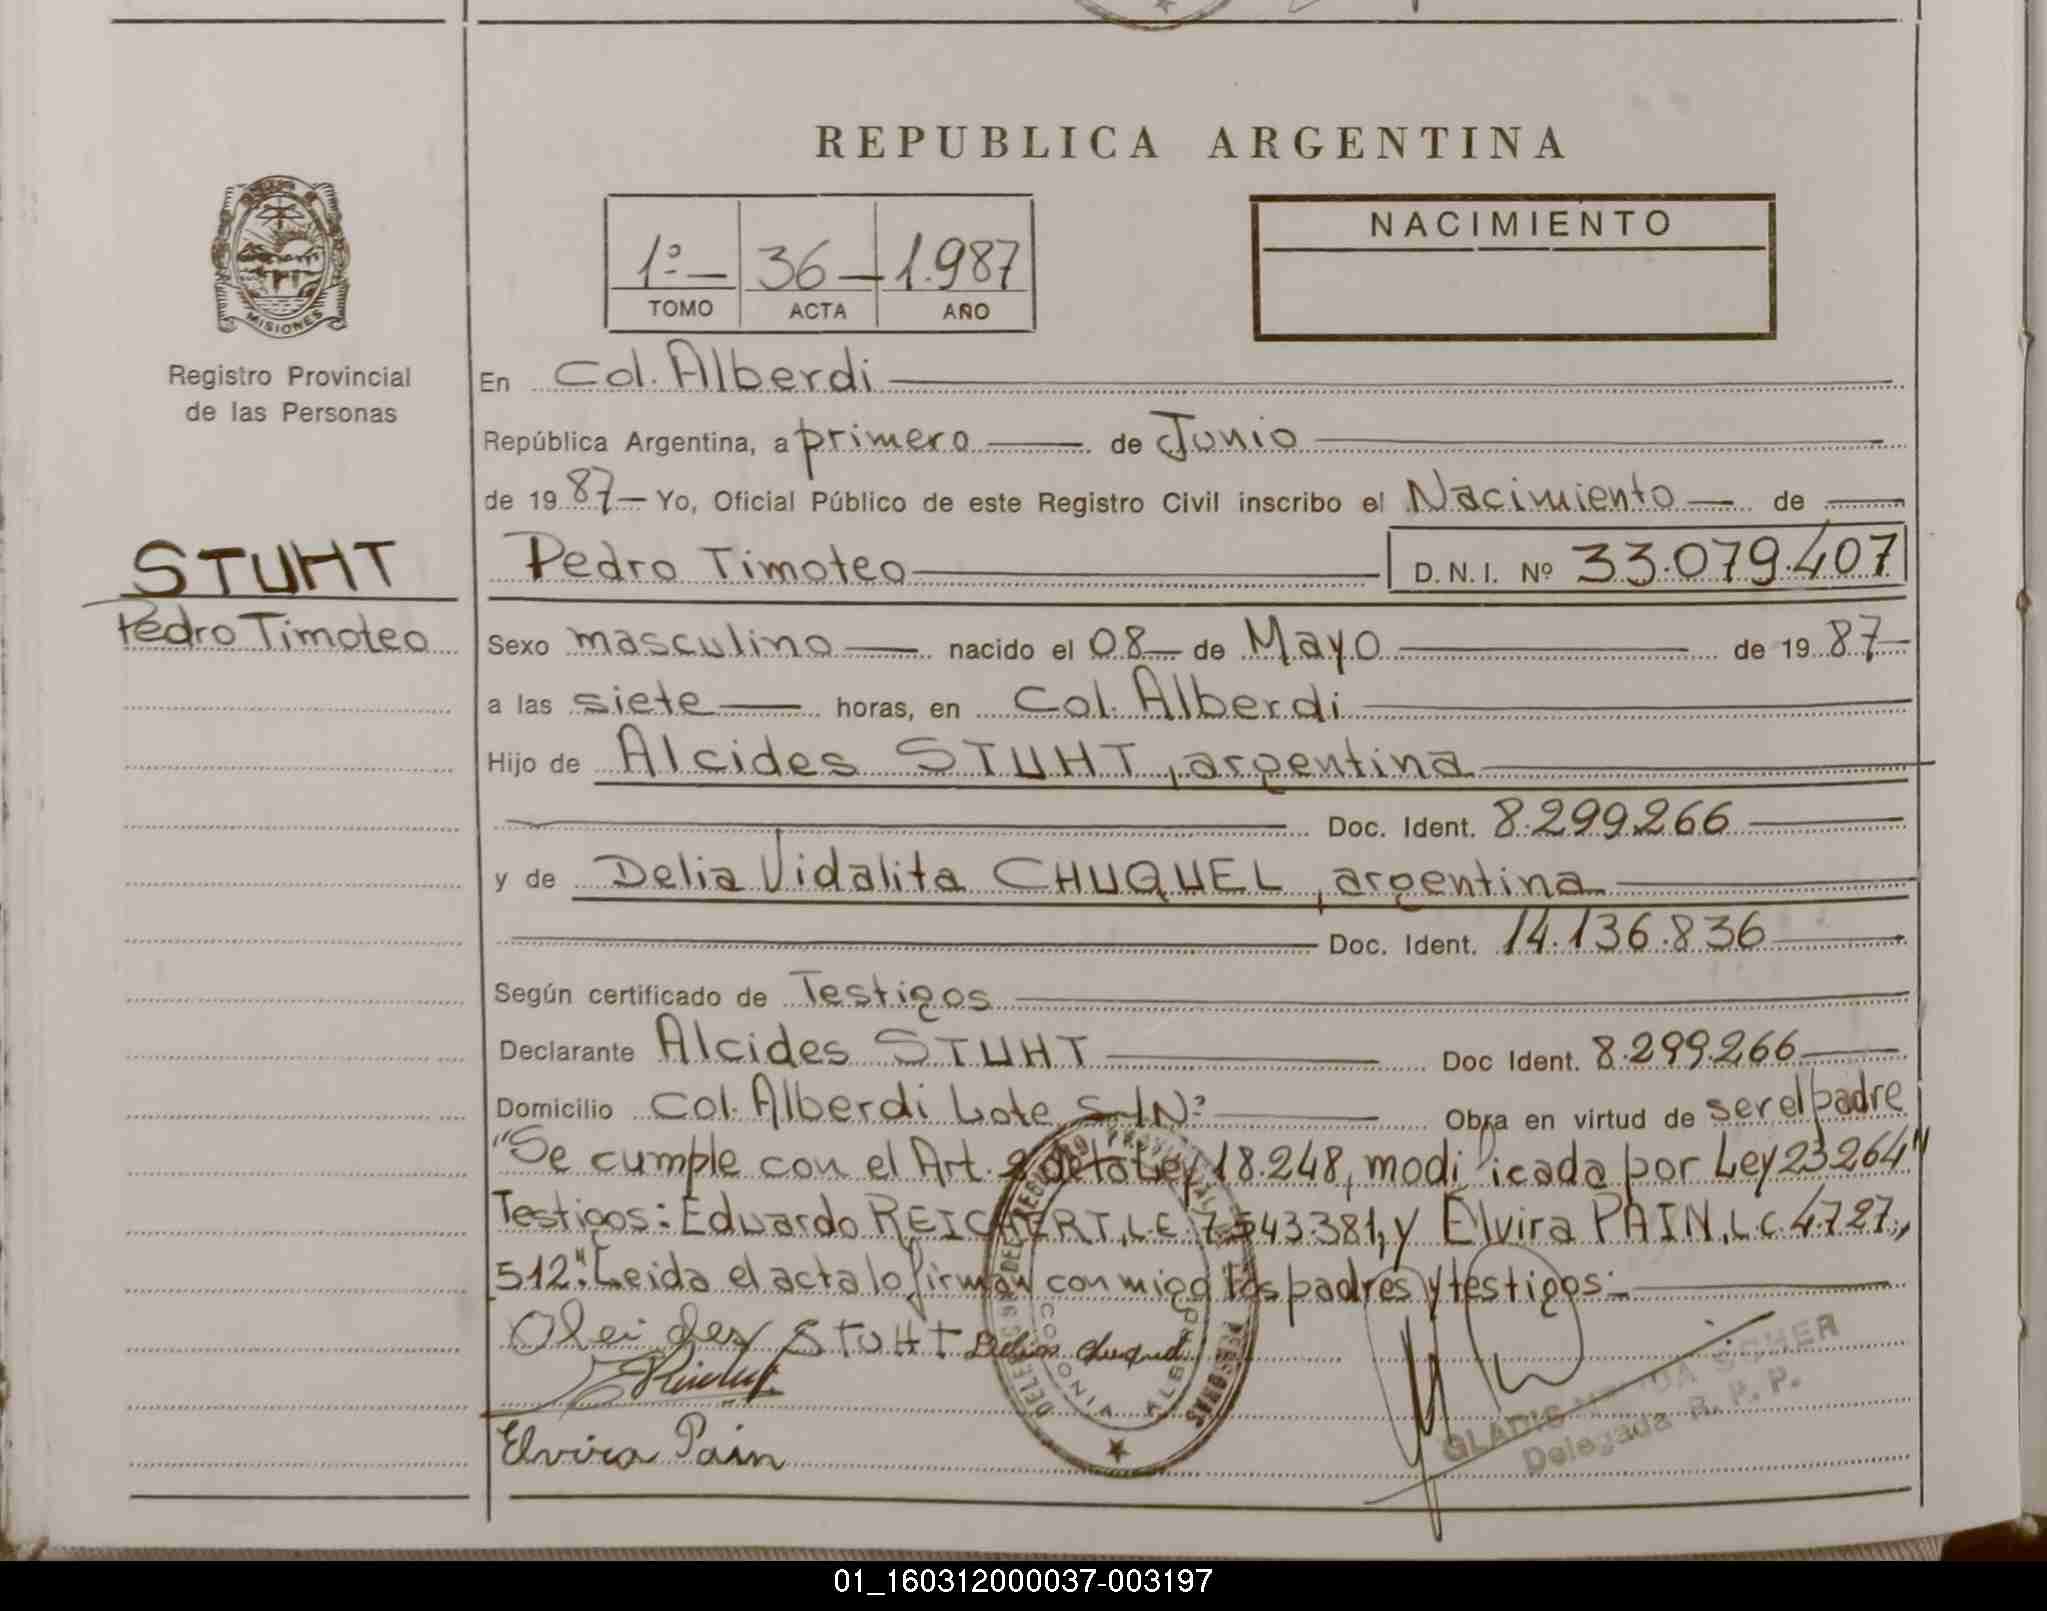 REPUBLICA ARGENTINA
MISIONES
Registro Provincial
de las Personas
1º 36 1.987
TOMO ACTA AÑO
NACIMIENTO
En Col. Alberdi
República Argentina, a primero de Junio
de 1987 Yo, Oficial Público de este Registro Civil inscribo el Nacimiento de
STUHT
Pedro Timoteo
Pedro Timoteo D.N.I. Nº 33.079.407
Sexo masculino nacido el 08 de Mayo de 1987
a las siete horas, en Col. Alberdi
Hijo de Alcides STUHT, argentina
Doc. Ident. 8.299.266
y de Delia Vidalita CHUQUEL, argentina
Doc. Ident. 14.136.836
Según certificado de Testigos
Declarante Alcides STUHT Doc Ident. 8.299.266
Domicilio Col. Alberdi Lote S/Nº Obra en virtud de ser el padre
"Se cumple con el Art. 2 de la Ley 18.248, modificada por Ley 23264"
Testigos: Eduardo REICHERT, L.E. 7.543.381, y Elvira PAIN, L.C. 4.727.,
512". Leida el acta lo firman conmigo los padres y testigos:
Olcides STUHT Delia Chuquel
Elvira Pain
GLADIS
Delegada R. P. P.
COLONIA ALBERDI
01_160312000037-003197